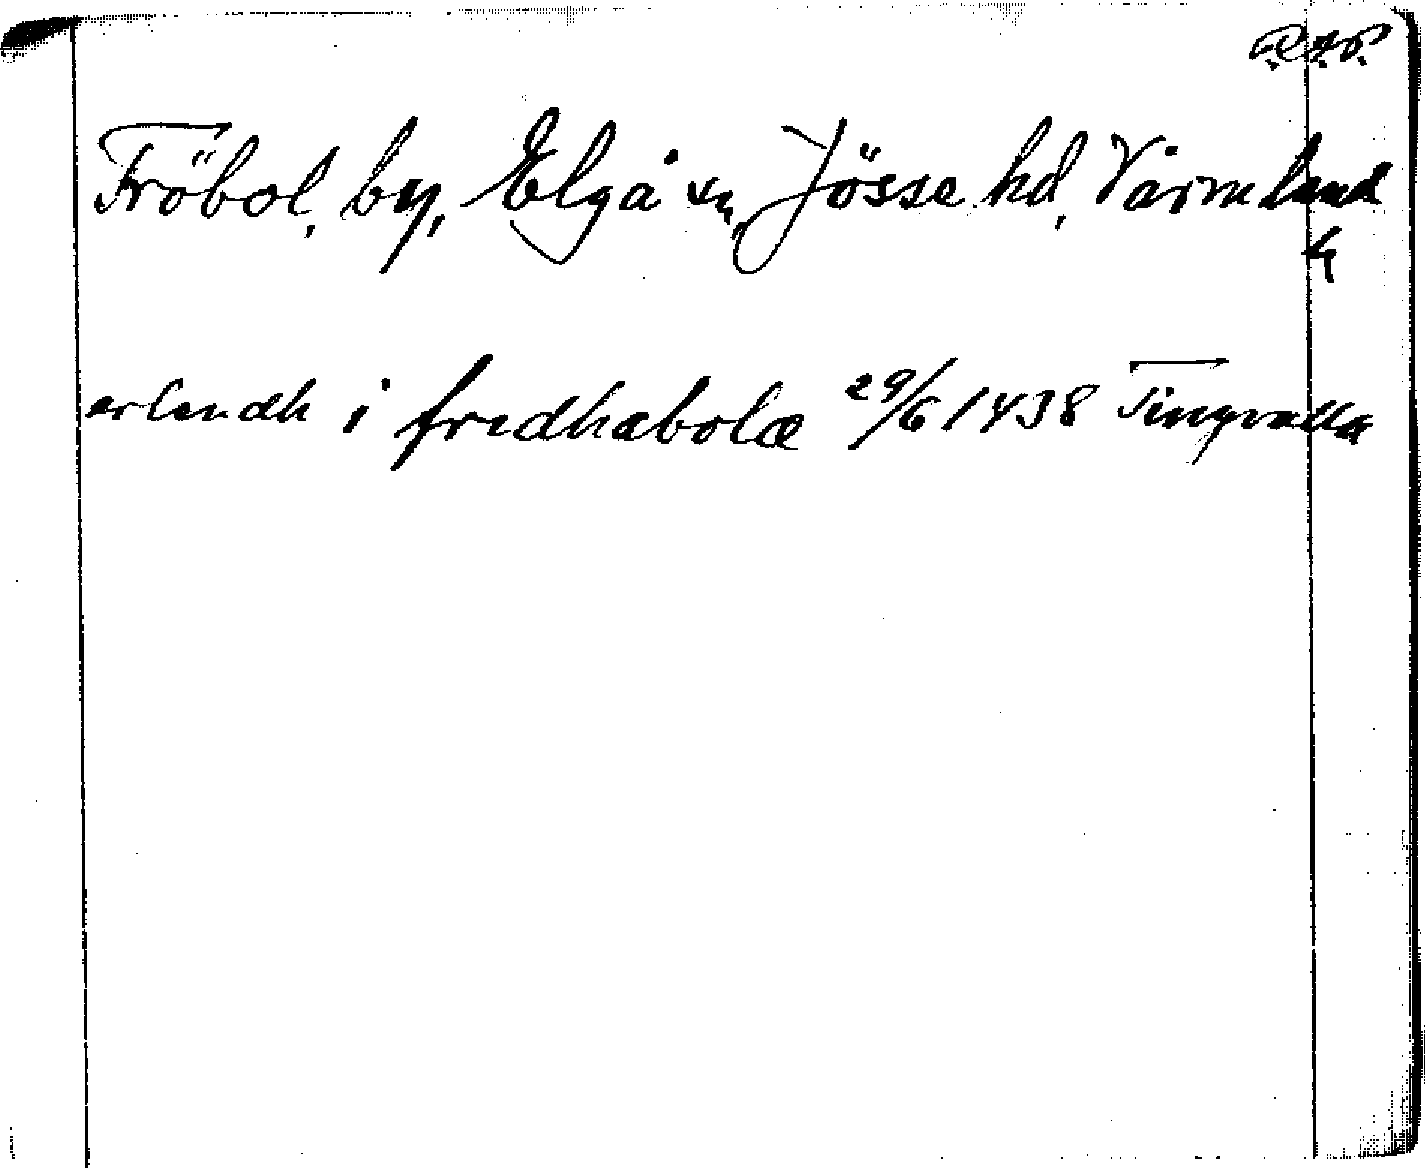 R.A.P.
Fröbol, by, Elgå sn, Jösse hd, Värmland
erlandh i fredhabolæ 29/6 1438 Tingvalla